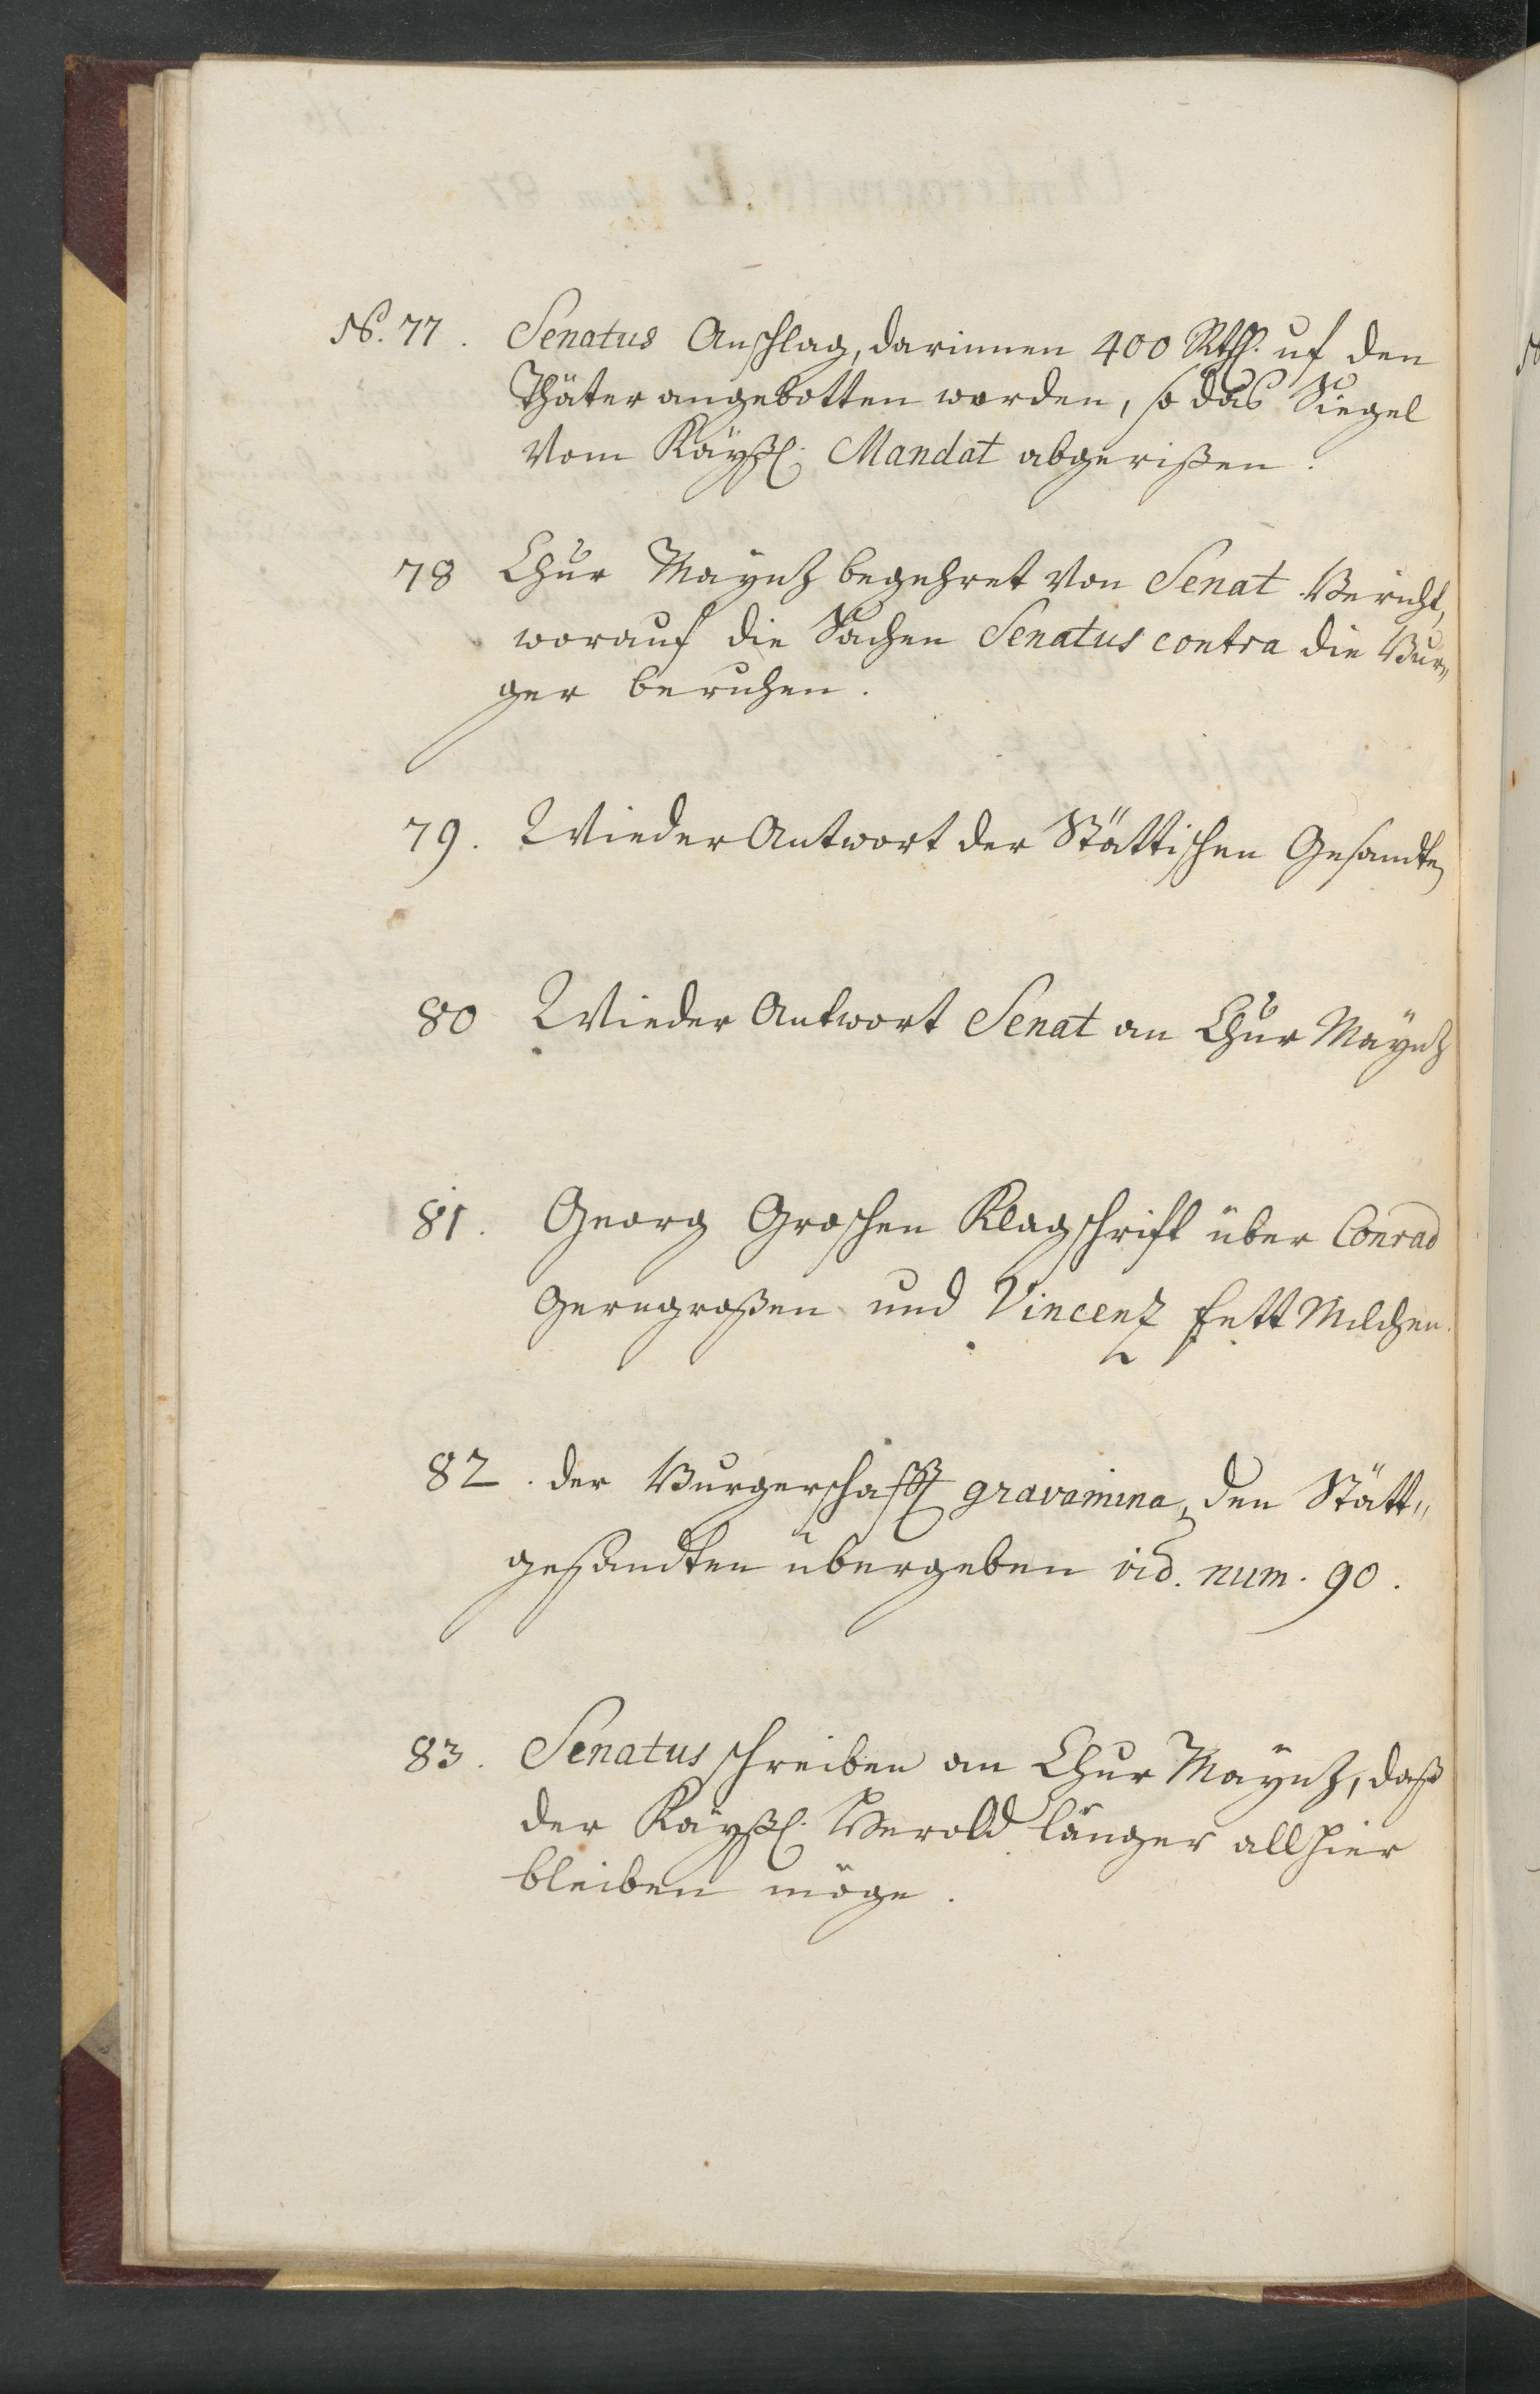 No. 77. Senatus Anschlag, darinnen 400 Rthl. uf den
Thäter angebotten worden, so das Siegel
vom Käyßl. Mandat abgerißen.
78 Chur Mayntz begehret von Senat Bericht,
worauf die Sachen Senatus contra die Bur„
ger beruhen.
79. Wieder Antwort der Stättischen Gesandten
80 Wieder Antwort Senat an Chur Mayntz
81. Georg Groschen Klagschrifft über Conrad
Gerngroßen und Vincenz Fett Milchen.
82. der Burgerschafft gravamina, den Stätt„
gesandten übergeben vid. num. 90.
83. Senatus schreiben an Chur Mayntz, daß
der Käyßl. Herold länger allhier
bleiben möge.